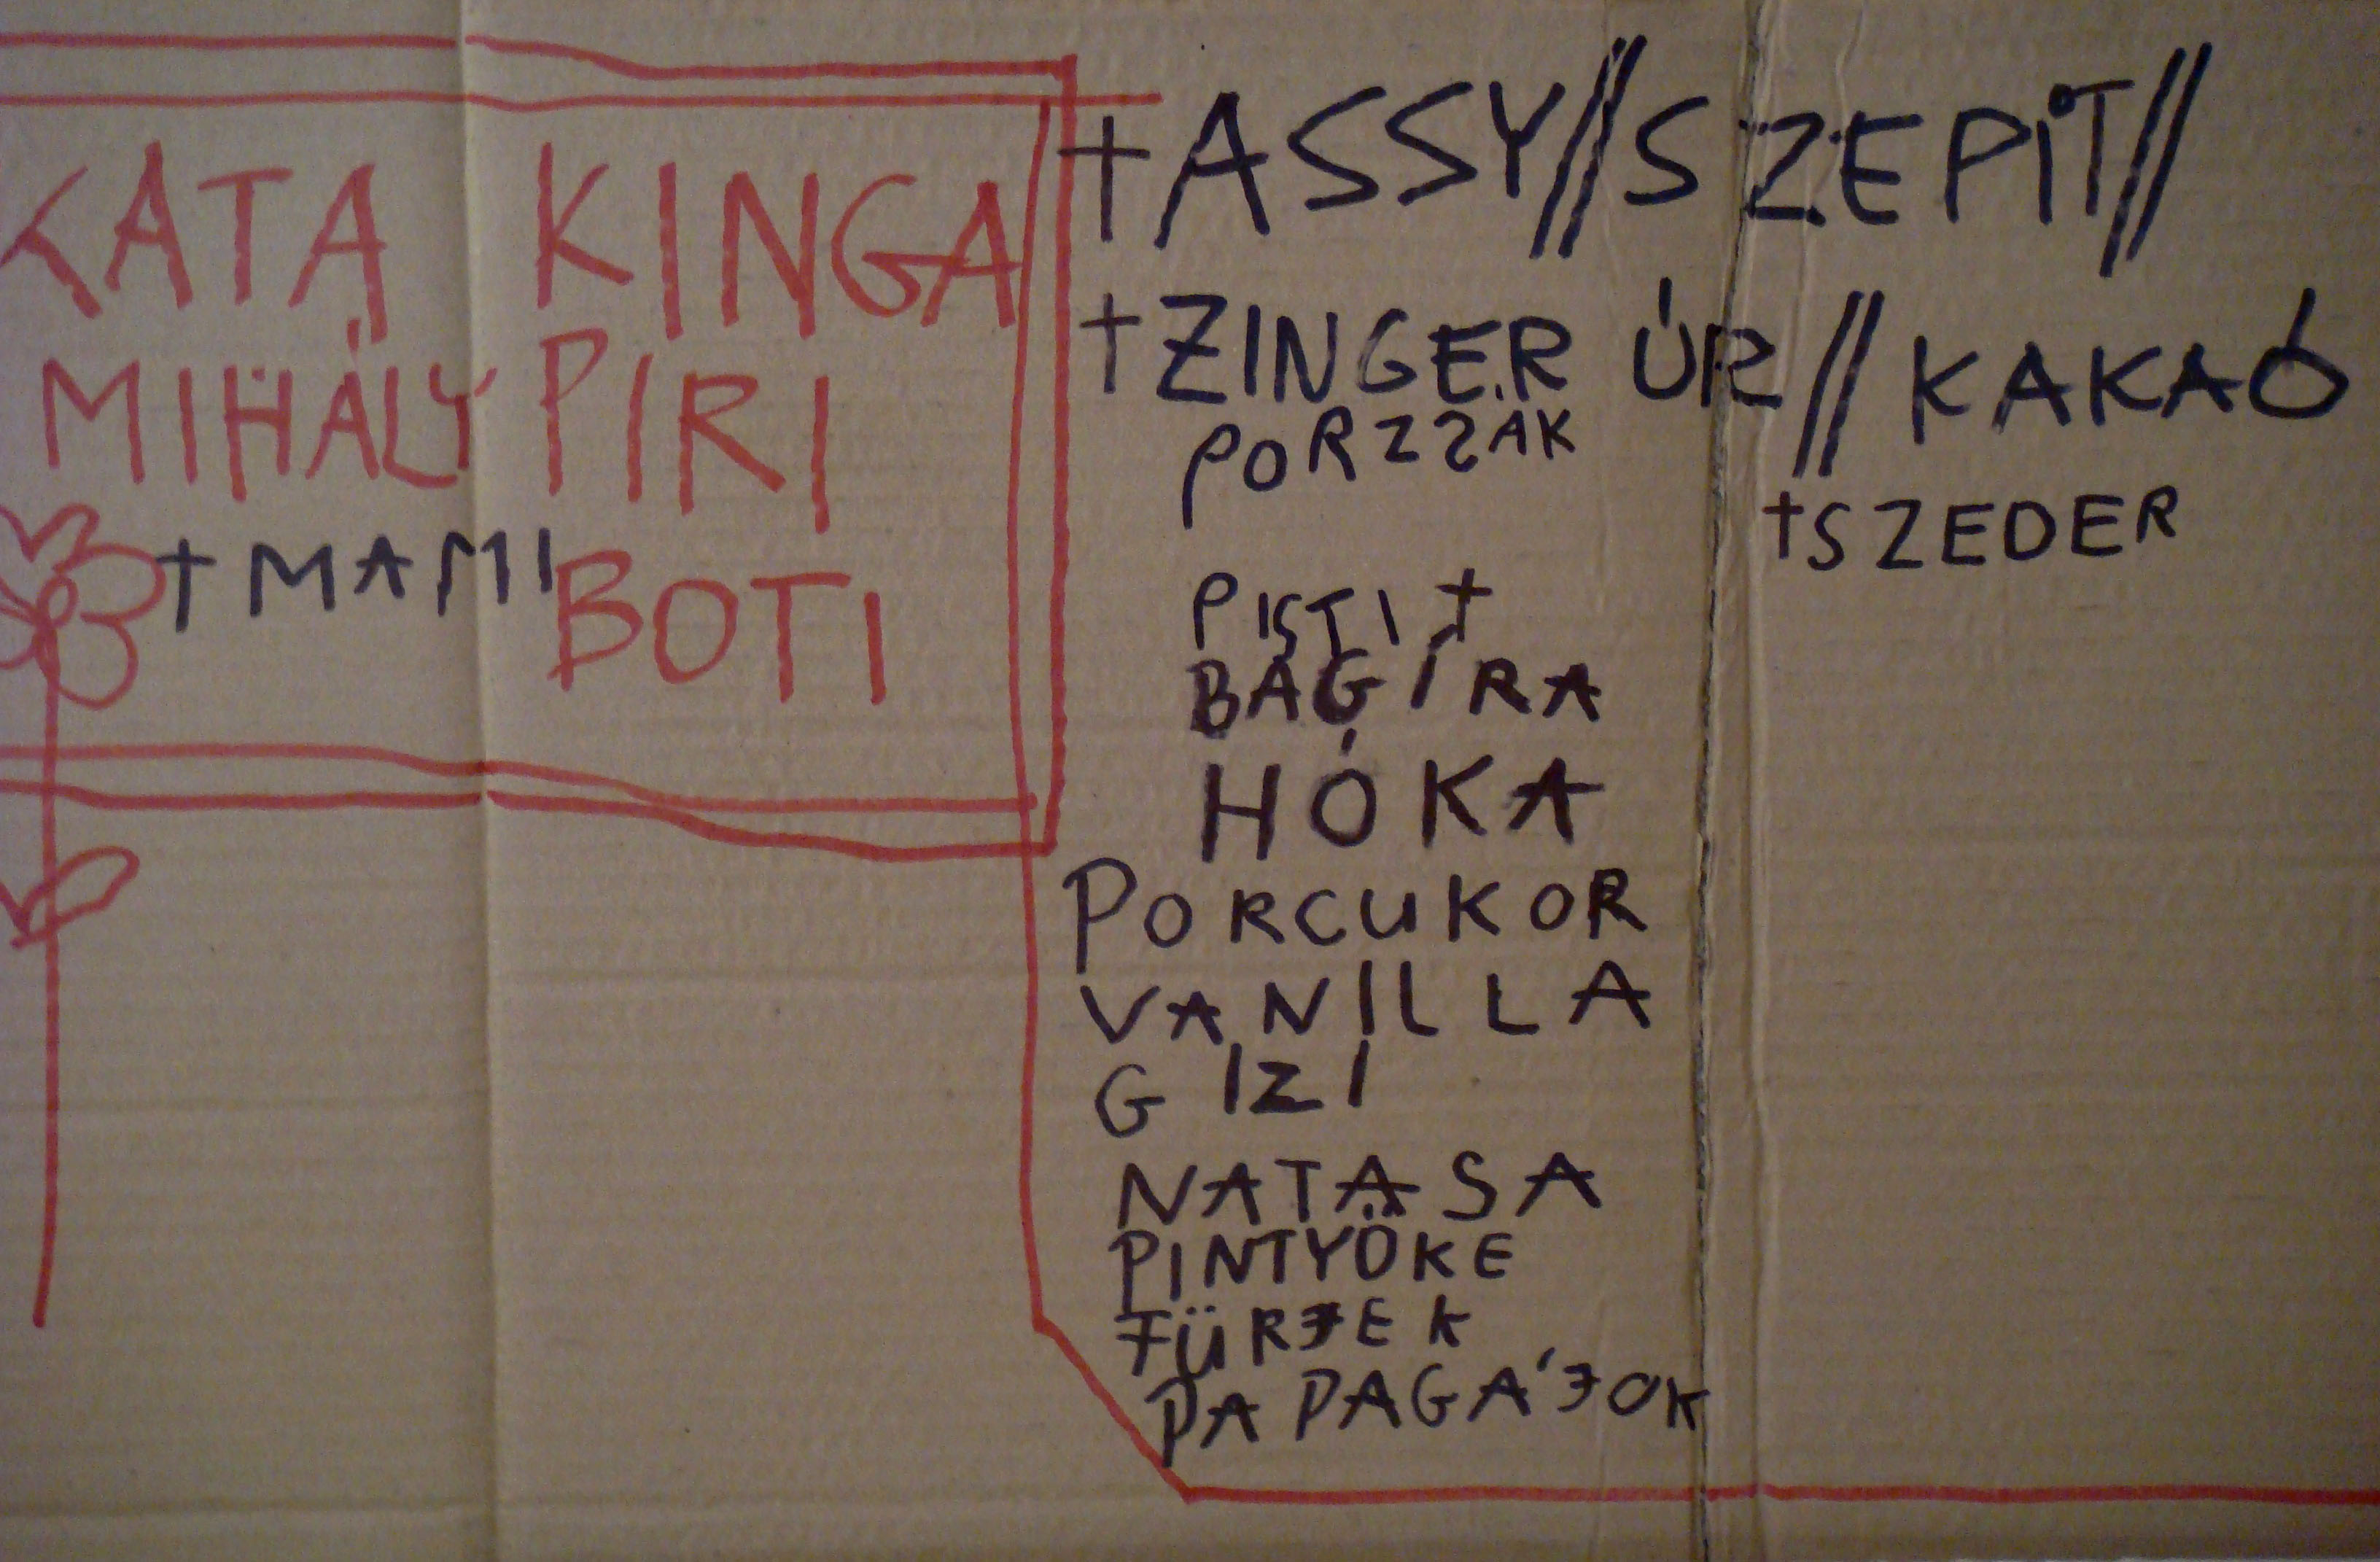 KATA KINGA
MIHÁLY PIRI
†MAMI BOTI
†ASSY//SZEPIT//
†ZINGER ÚR//KAKAÓ
PORZSÁK
†SZEDER
PISTI †
BAGIRA
HÓKA
PORCUKOR
VANILLA
GIZI
NATASA
PINTYŐKE
FÜRJEK
PAPAGÁJOK